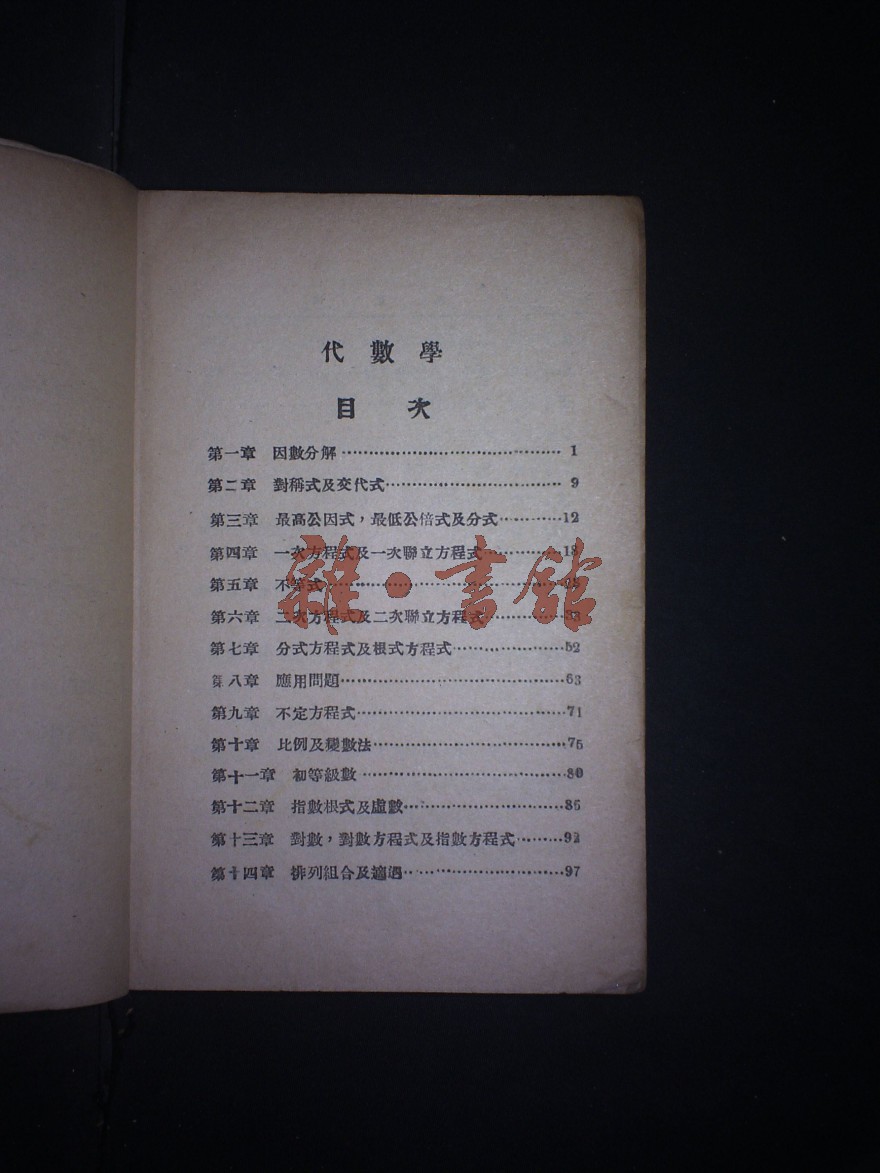 代數學
目次
第一章 因數分解…………………………………… 1
第二章 對稱式及交代式…………………………… 9
第三章 最高公因式，最低公倍式及分式…………12
第四章 一次方程式及一次聯立方程式……………18
第五章 不等式……………………………………
第六章 二次方程式及二次聯立方程式……………33
第七章 分式方程式及根式方程式…………………52
第八章 應用問題……………………………………63
第九章 不定方程式…………………………………71
第十章 比例及變數法………………………………75
第十一章 初等級數…………………………………80
第十二章 指數根式及虛數…………………………86
第十三章 對數，對數方程式及指數方程式………92
第十四章 排列組合及適遇…………………………97
雜·書館